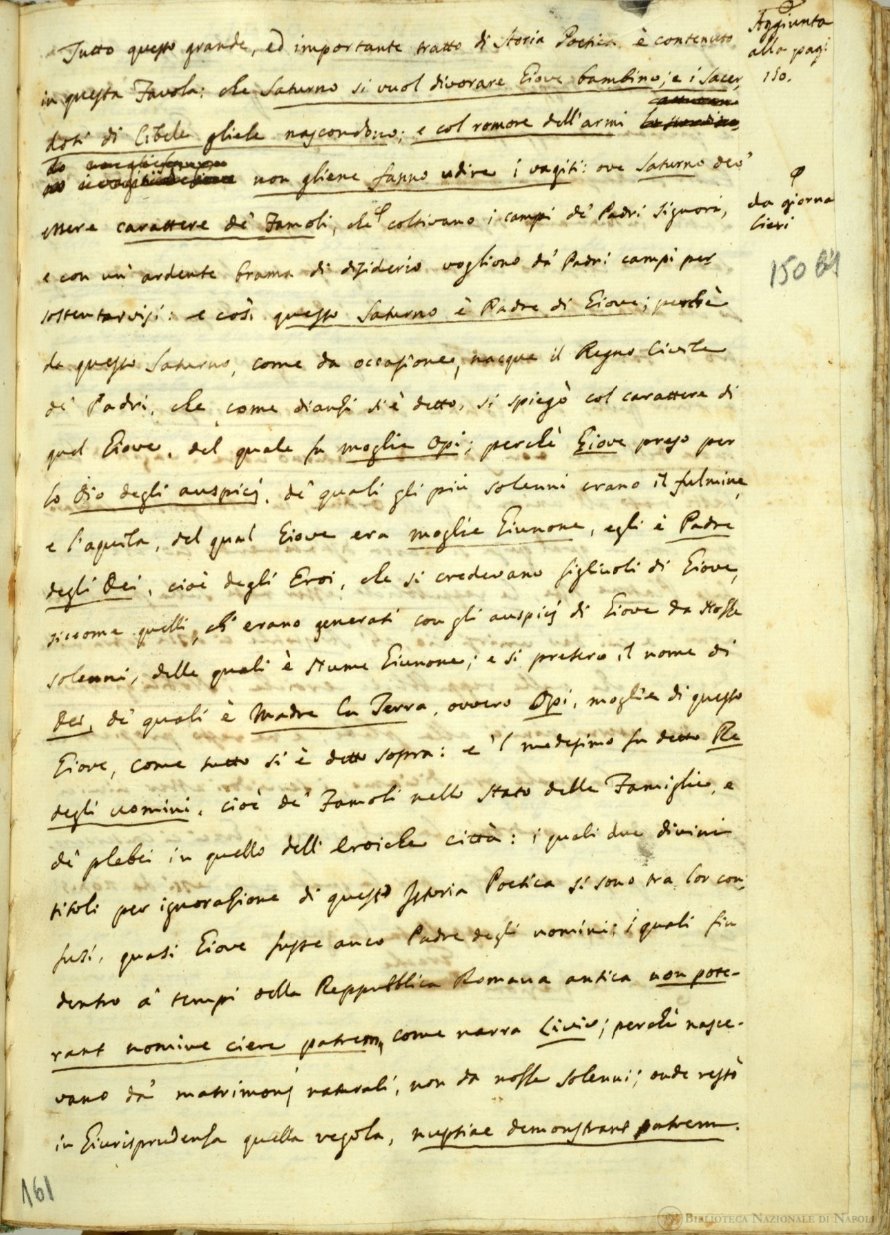 Tutto questo grande, ed importante tratto di Storia Poetica è contenuto
in questa Favola: che Saturno si vuol divorare Giove bambino; e i Sacer,
doti di Cibele gliele nascondono; e col romore dell'armi
non gliene fanno udire i vagiti: ove Saturno dev'
essere carattere de' Famoli, che coltivano i campi de' Padri Signori,
e con un' ardente brama di disiderio vogliono da' Padri campi per
sostentarvisi: e così questo Saturno è Padre di Giove; perchè
da questo Saturno, come da occasione, nacque il Regno Civile
de' Padri, che, come dianzi si è detto, si spiegò col carattere di
quel Giove, del quale fu moglie Opi; perchè Giove preso per
lo Dio degli auspicj, de' quali gli più solenni erano il fulmine,
e l'aquila, del qual Giove era moglie Giunone, egli è Padre
degli Dei, cioè degli Eroi, che si credevano figliuoli di Giove,
siccome quelli, ch' erano generati con gli auspicj di Giove da nozze
solenni, delle quali è Nume Giunone; e si presero il nome di
Dei, de' quali è Madre la Terra, ovvero Opi, moglie di questo
Giove, come tutto si è detto sopra: e 'l medesimo fu detto Re
degli uomini, cioè de' Famoli nello stato delle Famiglie, e
de' plebei in quello dell' Eroiche città: i quali due divini
titoli per ignorazione di questa Istoria Poetica si sono tra lor con,
fusi, quasi Giove fusse anco Padre degli uomini; i quali fin
dentro a' tempi della Reppubblica Romana antica non pote-
rant nomine ciere patrem, come narra Livio; perchè nasce-
vano da' matrimonj naturali, non da nozze solenni; onde restò
in Giurisprudenza quella regola, nuptiae demonstrant patrem.
Aggiunta
alla pagi
150.
da giorna
lieri
150 bis
161
Biblioteca Nazionale di Napoli